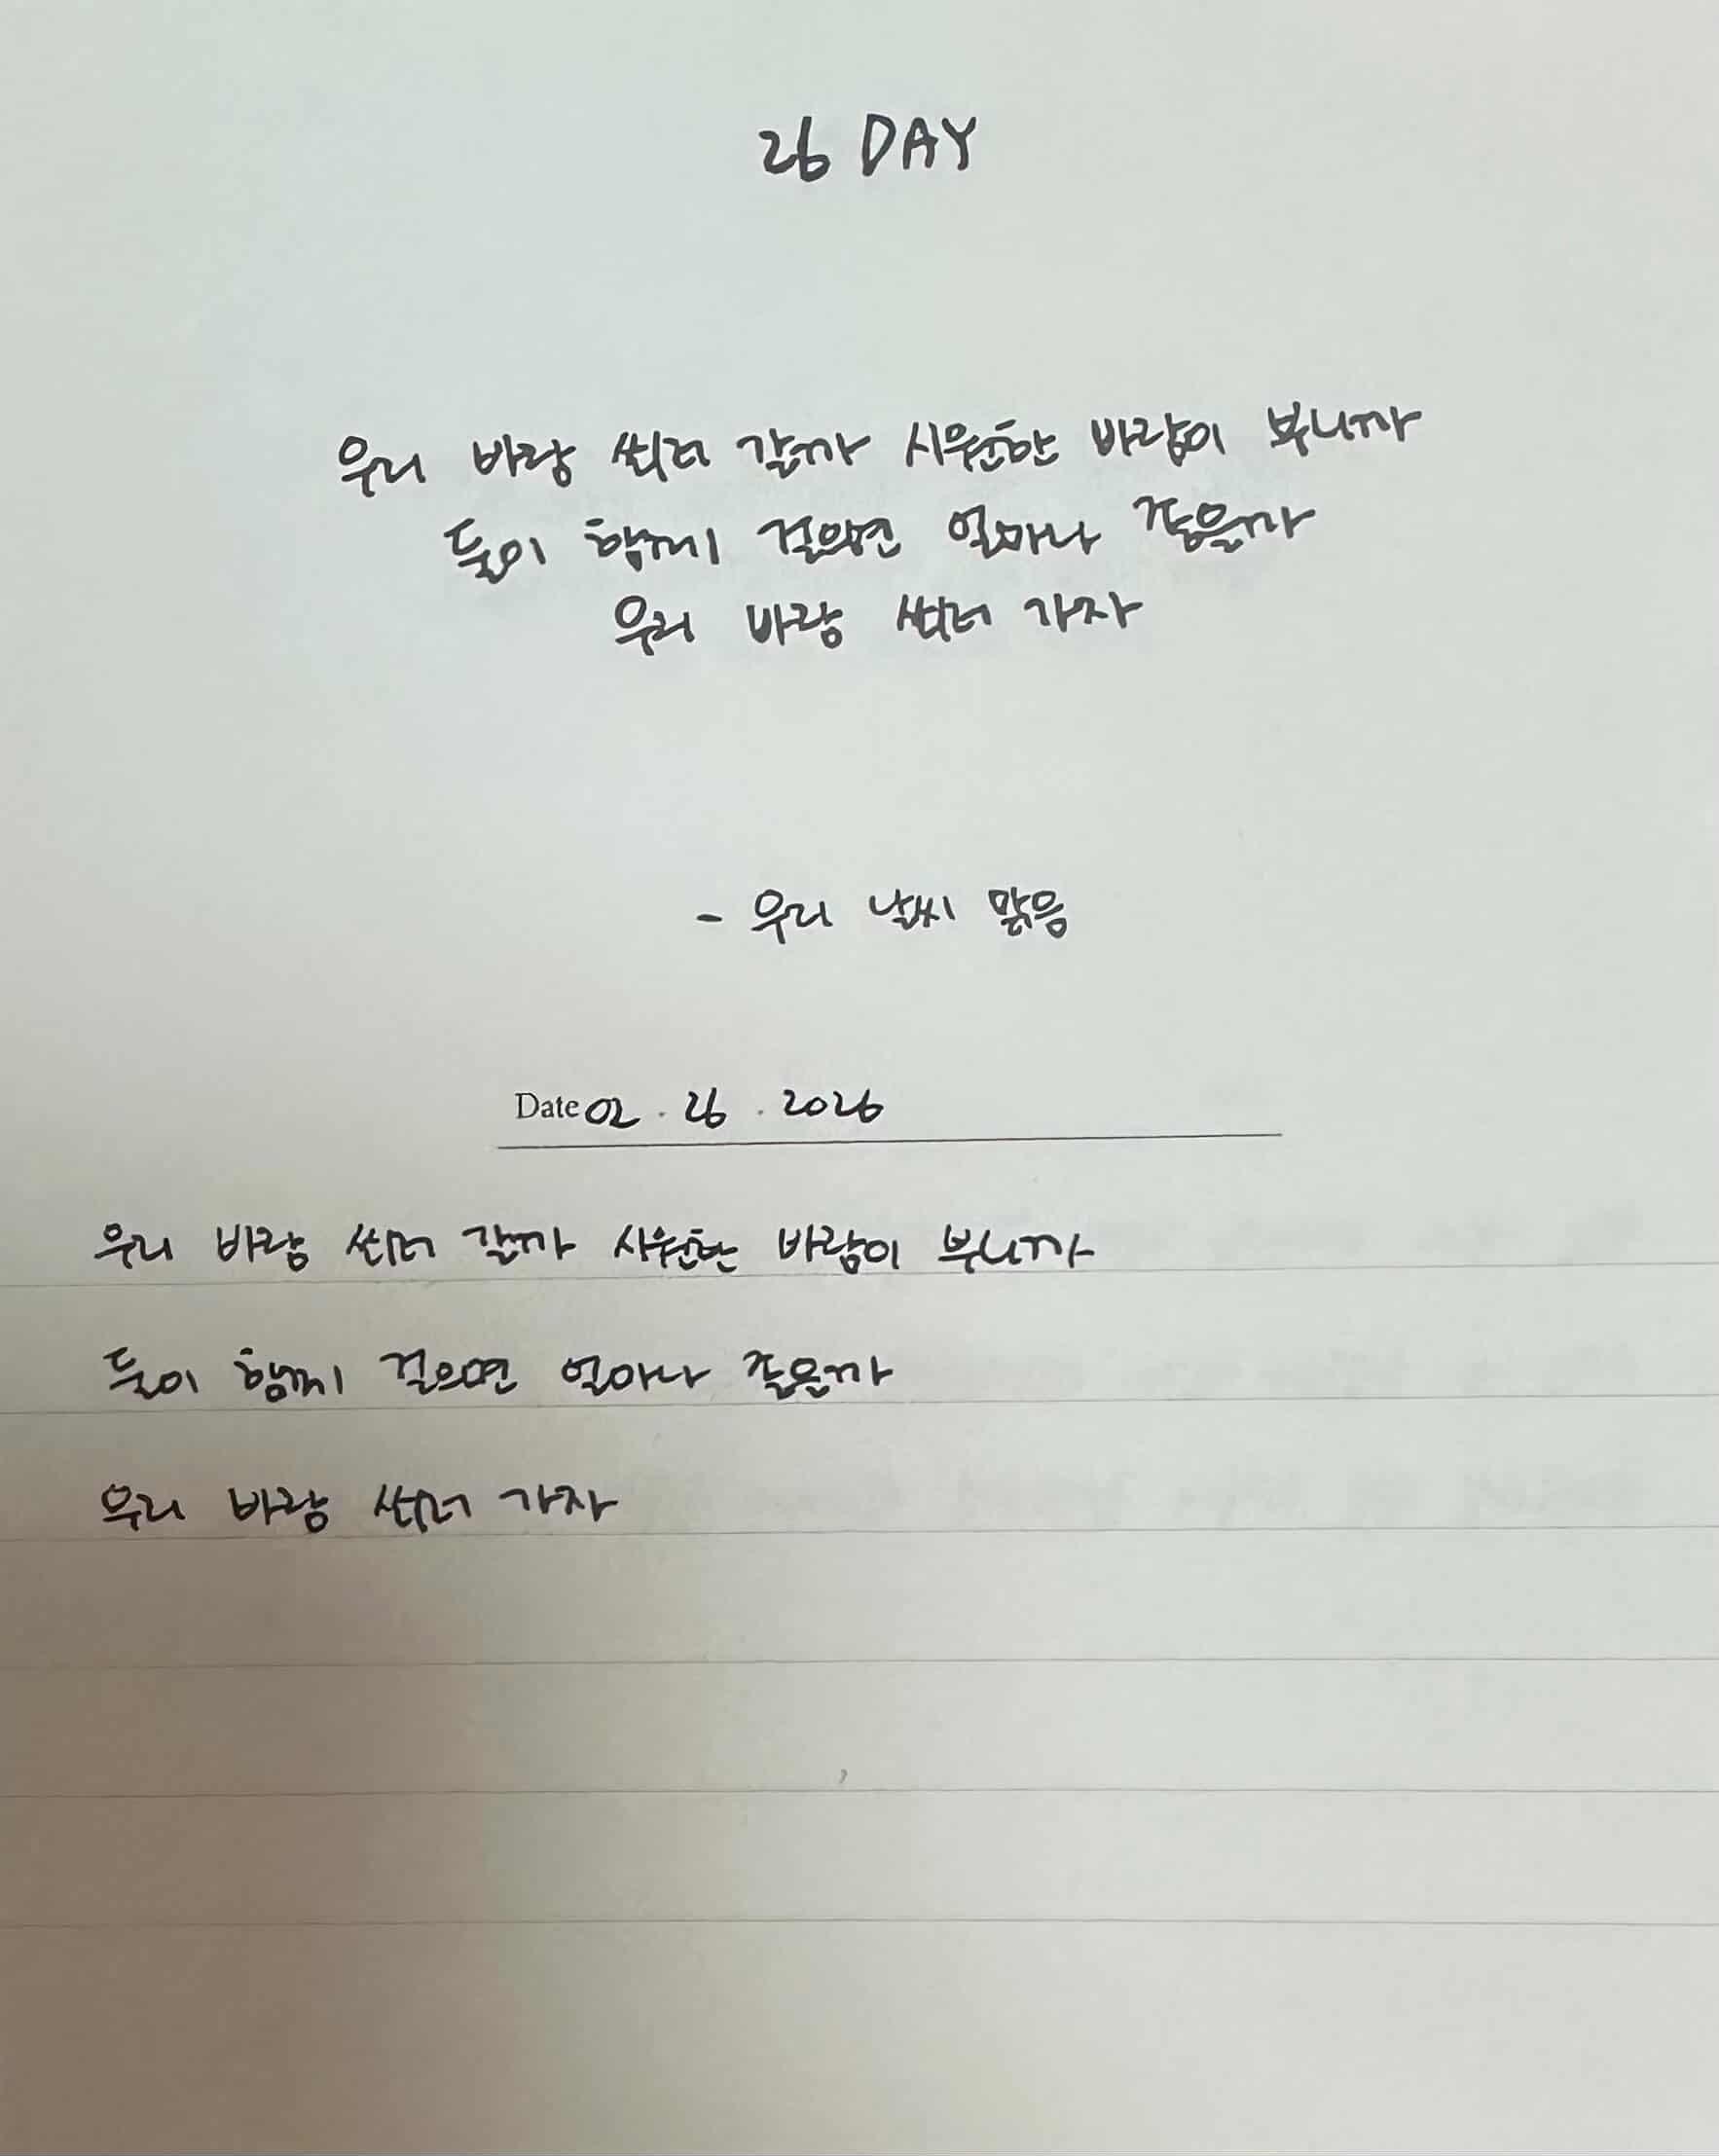 26 DAY
우리 바람 쐬러 갈까 시원한 바람이 부니까
둘이 함께 걸으면 얼마나 좋을까
우리 바람 쐬러 가자
- 우리 날씨 맑음
Date 02 . 26 . 2026
우리 바람 쐬러 갈까 시원한 바람이 부니까
둘이 함께 걸으면 얼마나 좋을까
우리 바람 쐬러 가자